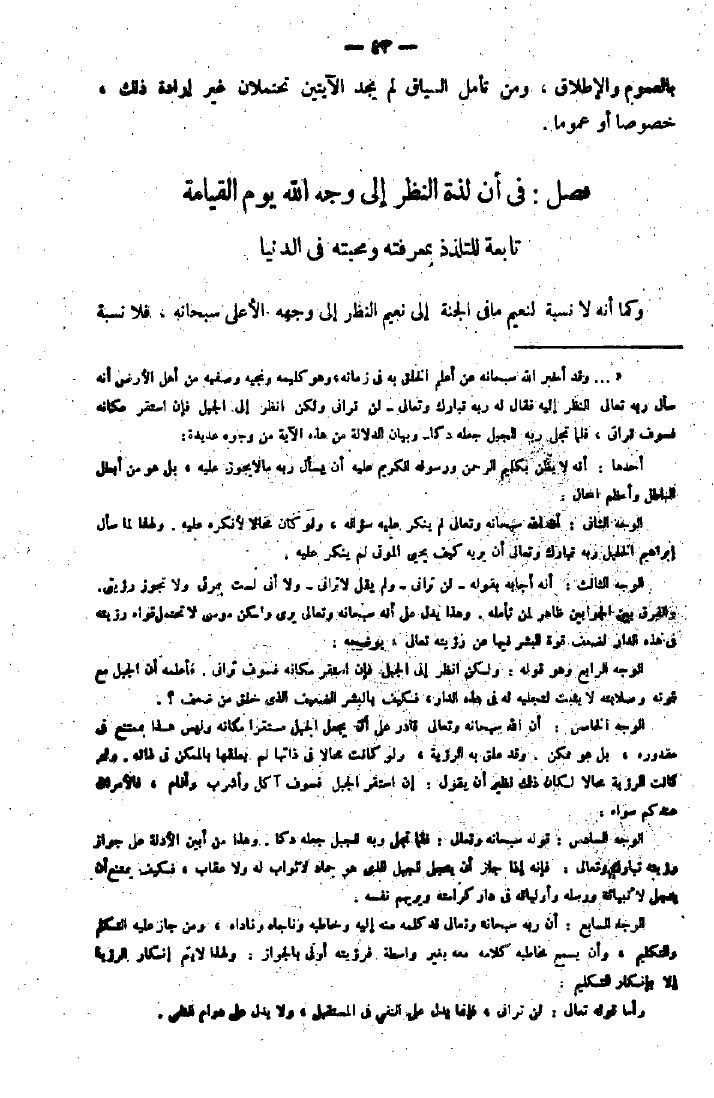 — ٤٣ —
بالعموم والإطلاق ، ومن تأمل السياق لم يجد الآيتين تحتملان غير إرادة ذلك ،
خصوصا أو عموما .
فصل : فى أن لذة النظر إلى وجه الله يوم القيامة
تابعة للتلذذ بمعرفته ومحبته فى الدنيا
وكما أنه لا نسبة لنعيم مافى الجنة إلى نعيم النظر إلى وجهه الأعلى سبحانه ، فلا نسبة
« ... وقد أخبر الله سبحانه عن أعلم الخلق به فى زمانه، وهو كليمه ونجيه وصفيه من أهل الأرض أنه
سأل ربه تعالى النظر إليه فقال له ربه تبارك وتعالى ـ لن ترانى ولكن انظر إلى الجبل فإن استقر مكانه
فسوف ترانى ، فلما تجلى ربه للجبل جعله دكا ـ وبيان الدلالة من هذه الآية من وجوه عديدة:
أحدها : أنه لا يظن بكليم الرحمن ورسوله الكريم عليه أن يسأل ربه مالايجوز عليه ، بل هو من أبطل
الباطل وأعظم المحال :
الوجه الثانى : أن الله سبحانه وتعالى لم ينكر عليه سؤاله ، ولو كان محالا لأنكره عليه . ولهذا لما سأل
إبراهيم الخليل ربه تبارك وتعالى أن يريه كيف يحيى الموتى لم ينكر عليه .
الوجه الثالث : أنه أجابه بقوله ـ لن ترانى ـ ولم يقل لاترانى ـ ولا أنى لست بمرئى ولا تجوز رؤيتى.
والفرق بين الجوابين ظاهر لمن تأمله . وهذا يدل على أنه سبحانه وتعالى يرى ولكن موسى لاتحتمل قواه رؤيته
فى هذه الدار لضعف قوة البشر فيها عن رؤيته تعالى ، يوضحه :
الوجه الرابع وهو قوله : ولكن انظر إلى الجبل فإن استقر مكانه فسوف ترانى . فأعلمه أن الجبل مع
قوته وصلابته لا يثبت لتجليه له فى هذه الدار، فكيف بالبشر الضعيف الذى خلق من ضعف ؟ .
الوجه الخامس : أن الله سبحانه وتعالى قادر على أن يجعل الجبل مستقرا مكانه وليس هذا بممتنع فى
مقدوره ، بل هو ممكن . وقد علق به الرؤية ، ولو كانت محالا فى ذاتها لم يعلقها بالممكن فى ذاته . ولو
كانت الرؤية محالا لكان ذلك نظير أن يقول : إن استقر الجبل فسوف آكل وأشرب وأنام ، فالأمران
عندكم سواء :
الوجه السادس : قوله سبحانه وتعالى : فلما تجلى ربه للجبل جعله دكا . وهذا من أبين الأدلة على جواز
رؤيته تبارك وتعالى : فإنه إذا جاز أن يتجلى للجبل الذى هو جماد لاثواب له ولا عقاب ، فكيف يمتنع أن
يتجلى لأنبيائه ورسله وأوليائه فى دار كرامته ويريهم نفسه .
الوجه السابع : أن ربه سبحانه وتعالى قد كلمه منه إليه وخاطبه وناجاه وناداه ، ومن جاز عليه التكلم
والتكليم ، وأن يسمع مخاطبه كلامه معه بغير واسطة فرؤيته أولى بالجواز : ولهذا لايتم إنكار الرؤية
إلا بإنكار التكليم :
وأما قوله تعالى : لن ترانى ، فإنما يدل على النفى فى المستقبل ، ولا يدل على دوام النفى .